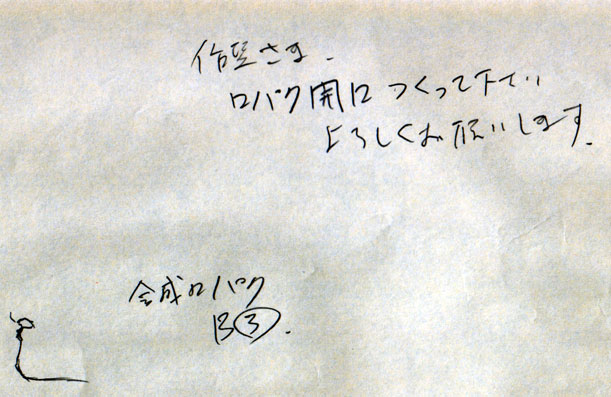 作監さま.
口パク開口つくって下さい
よろしくお願いします.
合成口パク
B③.